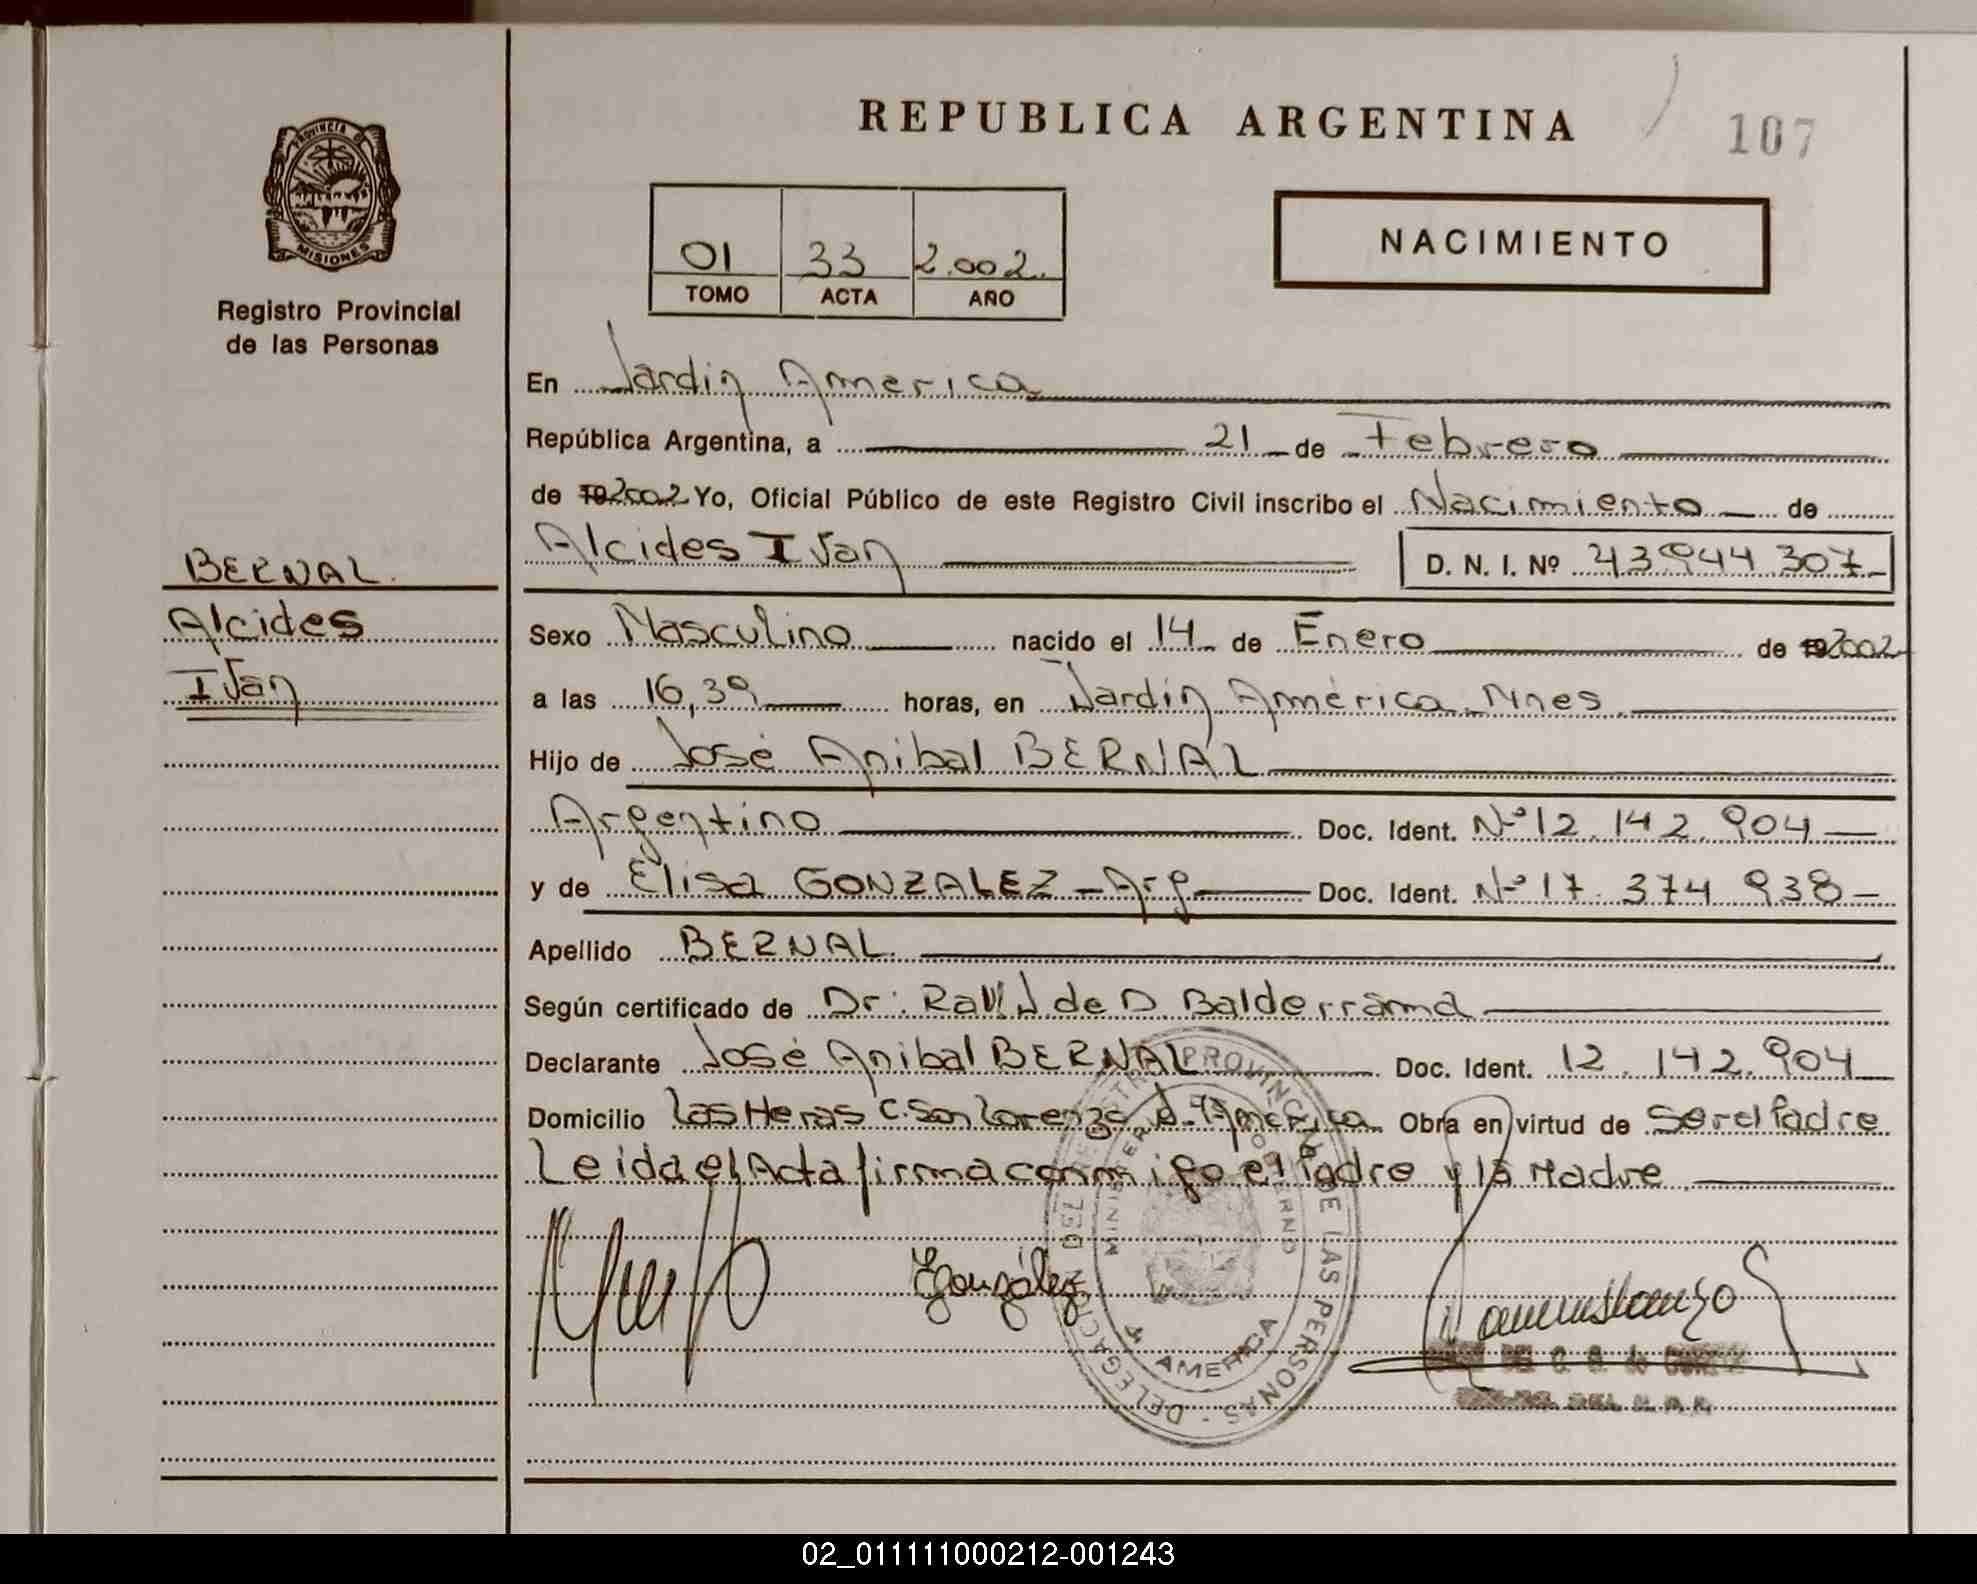 REPUBLICA ARGENTINA
107
PROVINCIA DE
MISIONES
Registro Provincial
de las Personas
01 33 2.002.
TOMO ACTA AÑO
NACIMIENTO
En Jardin America
República Argentina, a 21 de Febrero
de 19 2002 Yo, Oficial Público de este Registro Civil inscribo el Nacimiento de
Alcides Ivan D. N. I. Nº 43944 307
BERNAL.
Alcides
Iván
Sexo Masculino nacido el 14 de Enero de 19 2002
a las 16,39 horas, en Jardín América Mnes
Hijo de José Anibal BERNAL
Argentino Doc. Ident. Nº 12.142.904
y de Elisa GONZALEZ - Arg Doc. Ident. Nº 17.374 938
Apellido BERNAL
Según certificado de Dr: Raúl J de D Balderrama
Declarante José Anibal BERNAL Doc. Ident. 12.142.904
Domicilio Las Heras C. San Lorenzo J. América Obra en virtud de Ser el Padre
Leida el Acta firma conmigo el Padre y la Madre
EGonzález
PROVINCIAL DE LAS PERSONAS - DELEGACION
AMERICA
02_011111000212-001243